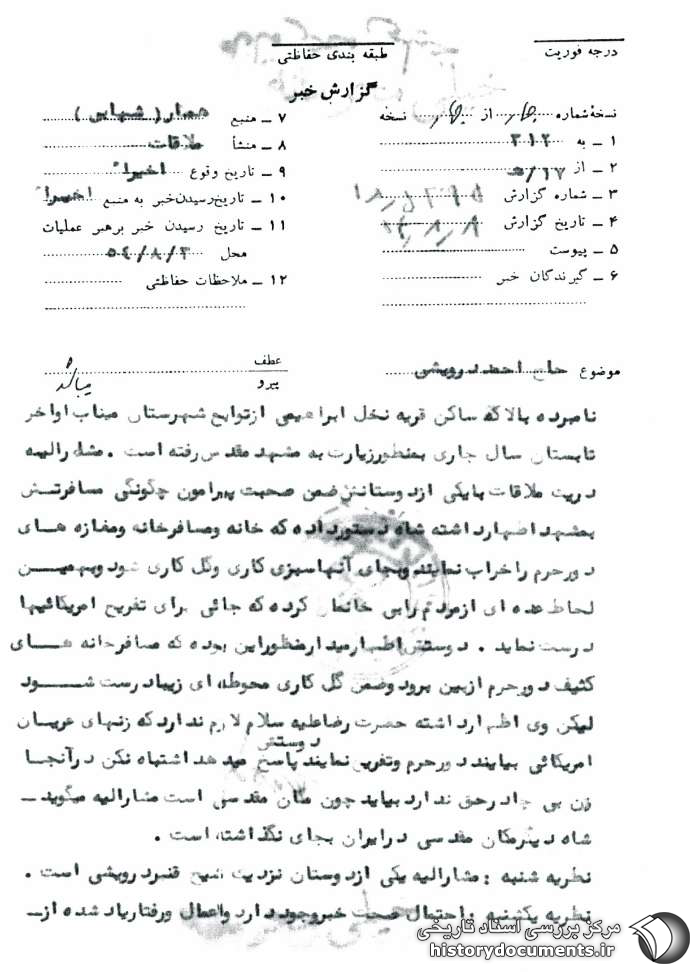 درجه فوریت
طبقه بندی حفاظتی
گزارش خبر
نسخهٔ شماره چهار از چهار نسخه
۱ ـ به ۳۱۲
۲ ـ از ۱۷/ه
۳ ـ شماره گزارش
۴ ـ تاریخ گزارش
۵ ـ پیوست
۶ ـ گیرندگان خبر
۷ ـ منبع
۸ ـ منشأ ملاقات
۹ ـ تاریخ وقوع اخیراً
۱۰ ـ تاریخ رسیدن خبر به منبع اخیراً
۱۱ ـ تاریخ رسیدن خبر برهبر عملیات
محل ۵۴/۸/۳
۱۲ ـ ملاحظات حفاظتی
موضوع حاج احمد درویشی
عطف
پیرو
میباشد
نامبرده بالا که ساکن قریه نخل ابراهیمی ازتوابع شهرستان میناب اواخر
تابستان سال جاری بمنظور زیارت به مشهد مقدس رفته است . مشارالیه
دریک ملاقات بایکی ازدوستانش ضمن صحبت پیرامون چگونگی مسافرتش
بمشهد اظهارداشته شاه دستورداده که خانه ومسافرخانه ومغازه های
دورحرم راخراب نمایند وبجای آنها سبزی کاری وگل کاری شود وبهمین
لحاظ عده ای ازمردم رابی خانمان کرده که جائی برای تفریح امریکائیها
درست نماید . دوستش اظهارمیدارد منظوراین بوده که مسافرخانه های
کثیف دورحرم ازبین برود وضمن گل کاری محوطه ای زیبا درست شود
لیکن وی اظهارداشته حضرت رضا علیه سلام لازم ندارد که زنهای عریان
امریکائی بیایند دورحرم وتفریح نمایند دوستش پاسخ میدهد اشتباه نکن درآنجا
زن بی چادر حق ندارد بیاید چون مکان مقدسی است مشارالیه میگوید ـ
شاه دیگرمکان مقدسی درایران بجای نگذاشته است .
نظریه شنبه : مشارالیه یکی ازدوستان نزدیک شیخ قنبر درویشی است .
نظریه یکشنبه : احتمال صحت خبر وجود دارد واعمال ورفتار یاد شده از ـ
مرکز بررسی اسناد تاریخی
historydocuments.ir